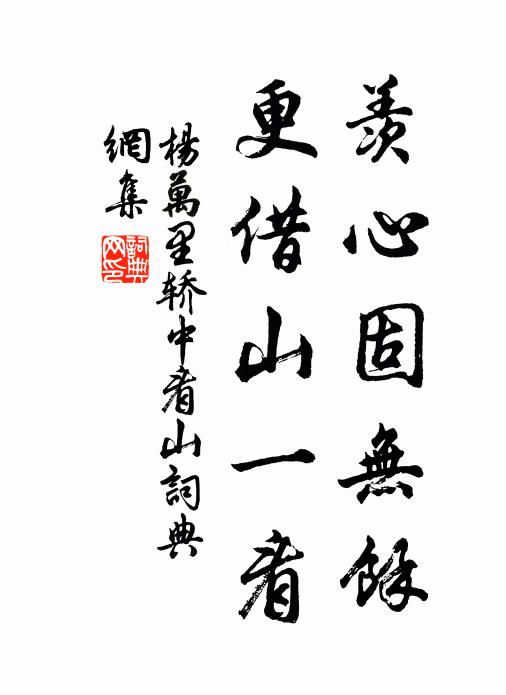 羨心固無餘
更借山一看
楊萬里轿中看山詞典
網集
詞典网印